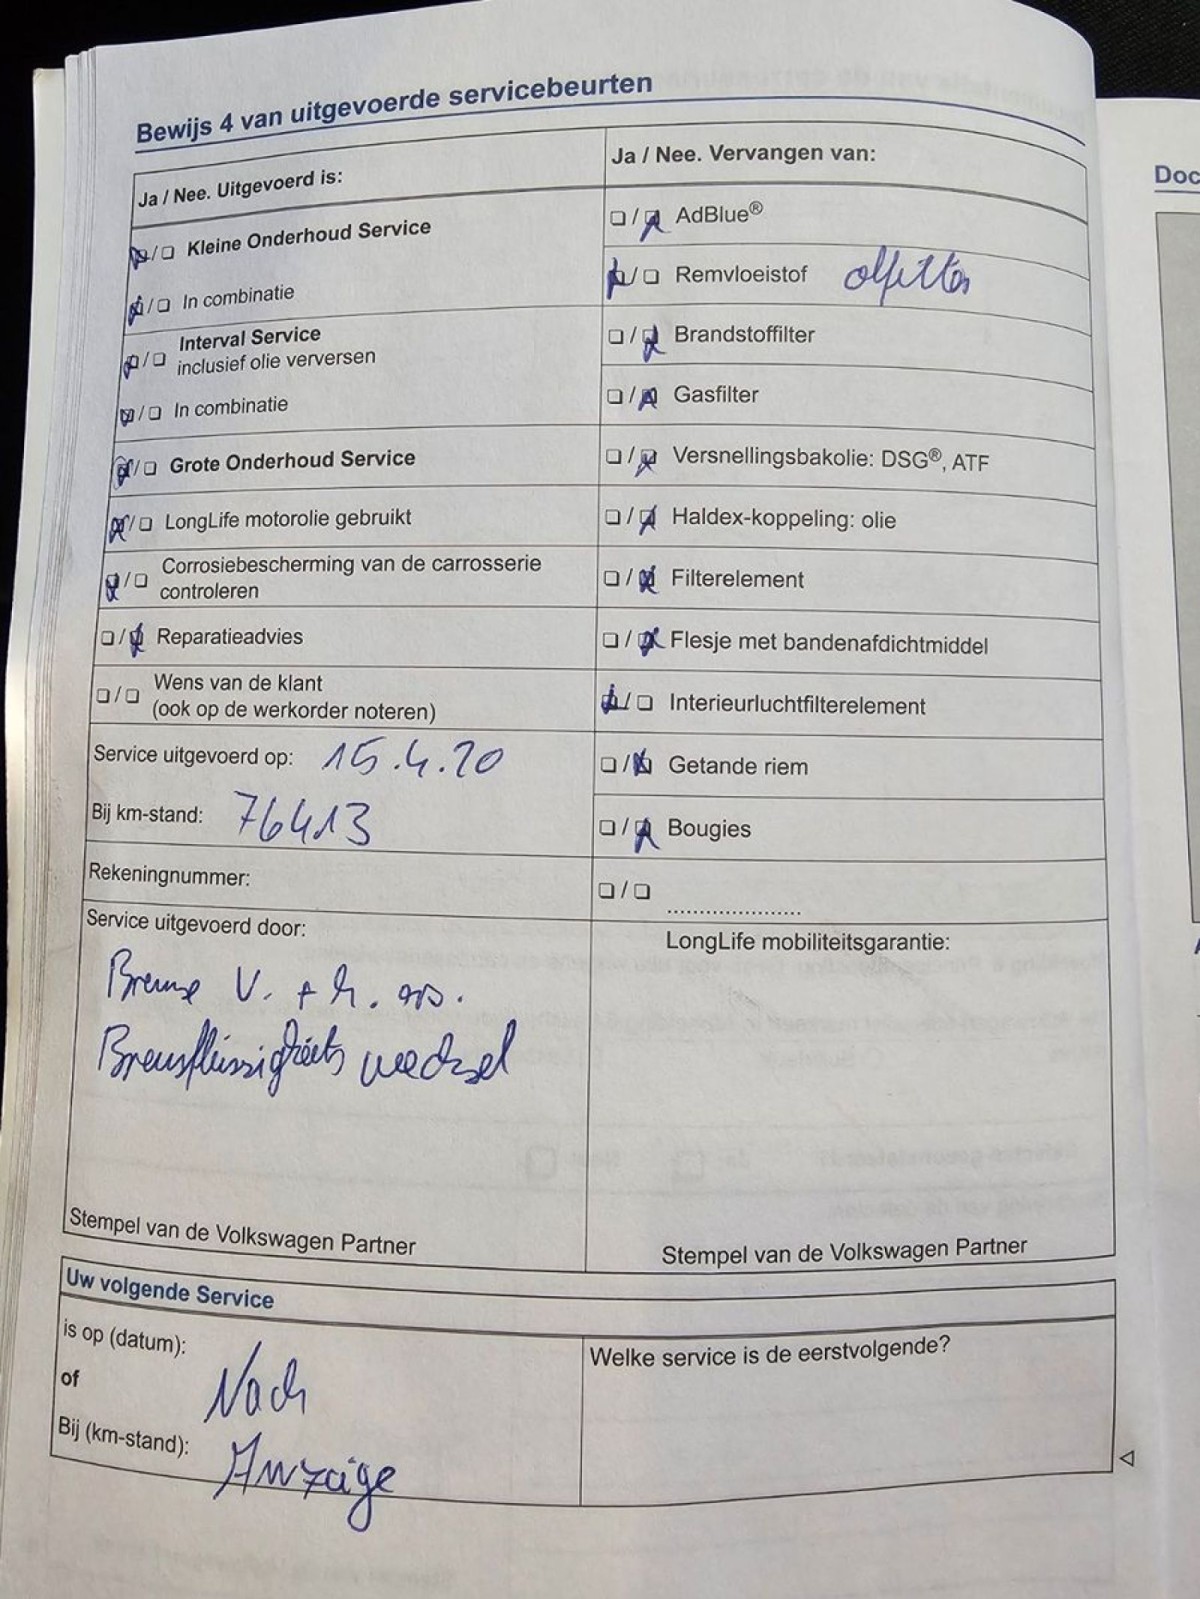 Bewijs 4 van uitgevoerde servicebeurten
Ja / Nee. Uitgevoerd is:
☒/☐ Kleine Onderhoud Service
☒/☐ In combinatie
☒/☐ Interval Service
inclusief olie verversen
☒/☐ In combinatie
☒/☐ Grote Onderhoud Service
☒/☐ LongLife motorolie gebruikt
☒/☐ Corrosiebescherming van de carrosserie
controleren
☐/☒ Reparatieadvies
☐/☐ Wens van de klant
(ook op de werkorder noteren)
Service uitgevoerd op: 15.4.20
Bij km-stand: 76413
Rekeningnummer:
Service uitgevoerd door:
Bremse V. + h.
Bremsflüssigkeits wechsel
Stempel van de Volkswagen Partner
Ja / Nee. Vervangen van:
☐/☒ AdBlue®
☒/☐ Remvloeistof
☐/☒ Brandstoffilter
☐/☒ Gasfilter
☐/☒ Versnellingsbakolie: DSG®, ATF
☐/☒ Haldex-koppeling: olie
☐/☒ Filterelement
☐/☒ Flesje met bandenafdichtmiddel
☒/☐ Interieurluchtfilterelement
☐/☒ Getande riem
☐/☒ Bougies
☐/☐ .....................
LongLife mobiliteitsgarantie:
Stempel van de Volkswagen Partner
Uw volgende Service
is op (datum):
of
Nach
Bij (km-stand):
Anzeige
Welke service is de eerstvolgende?
Doc